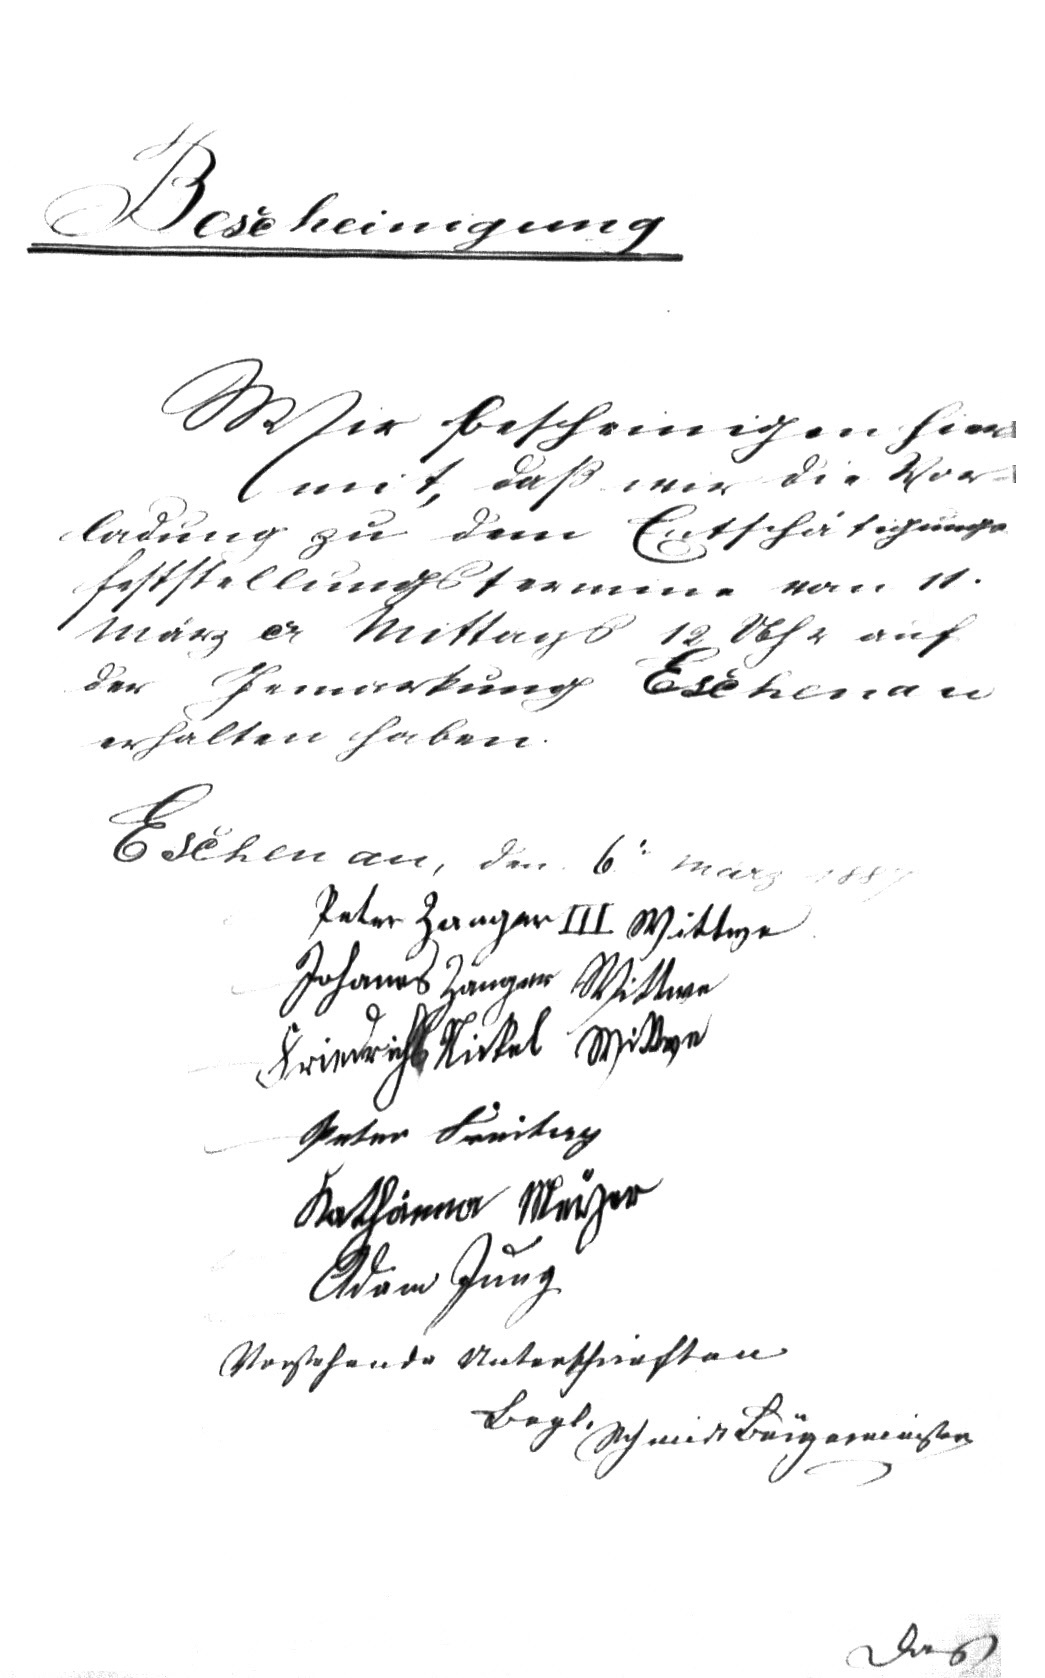 Bescheinigung
Wir bescheinigen hier
mit, daß wir die Vor-
ladung zu dem Entschätigungs
feststellungstermine von 11.
März cr Mittags 12 Uhr auf
der Gemarkung Eschenau
erhalten haben.
Eschenau, den 6. März 1887
Peter Zanger III Wittwe
Johanes Zanger Wittwe
Friedrich Nickel Wittwe
Peter Freitag
Adam Jung
Vorstehende Unterschriften
Begl.
Schmidt Bürgermeister
Das